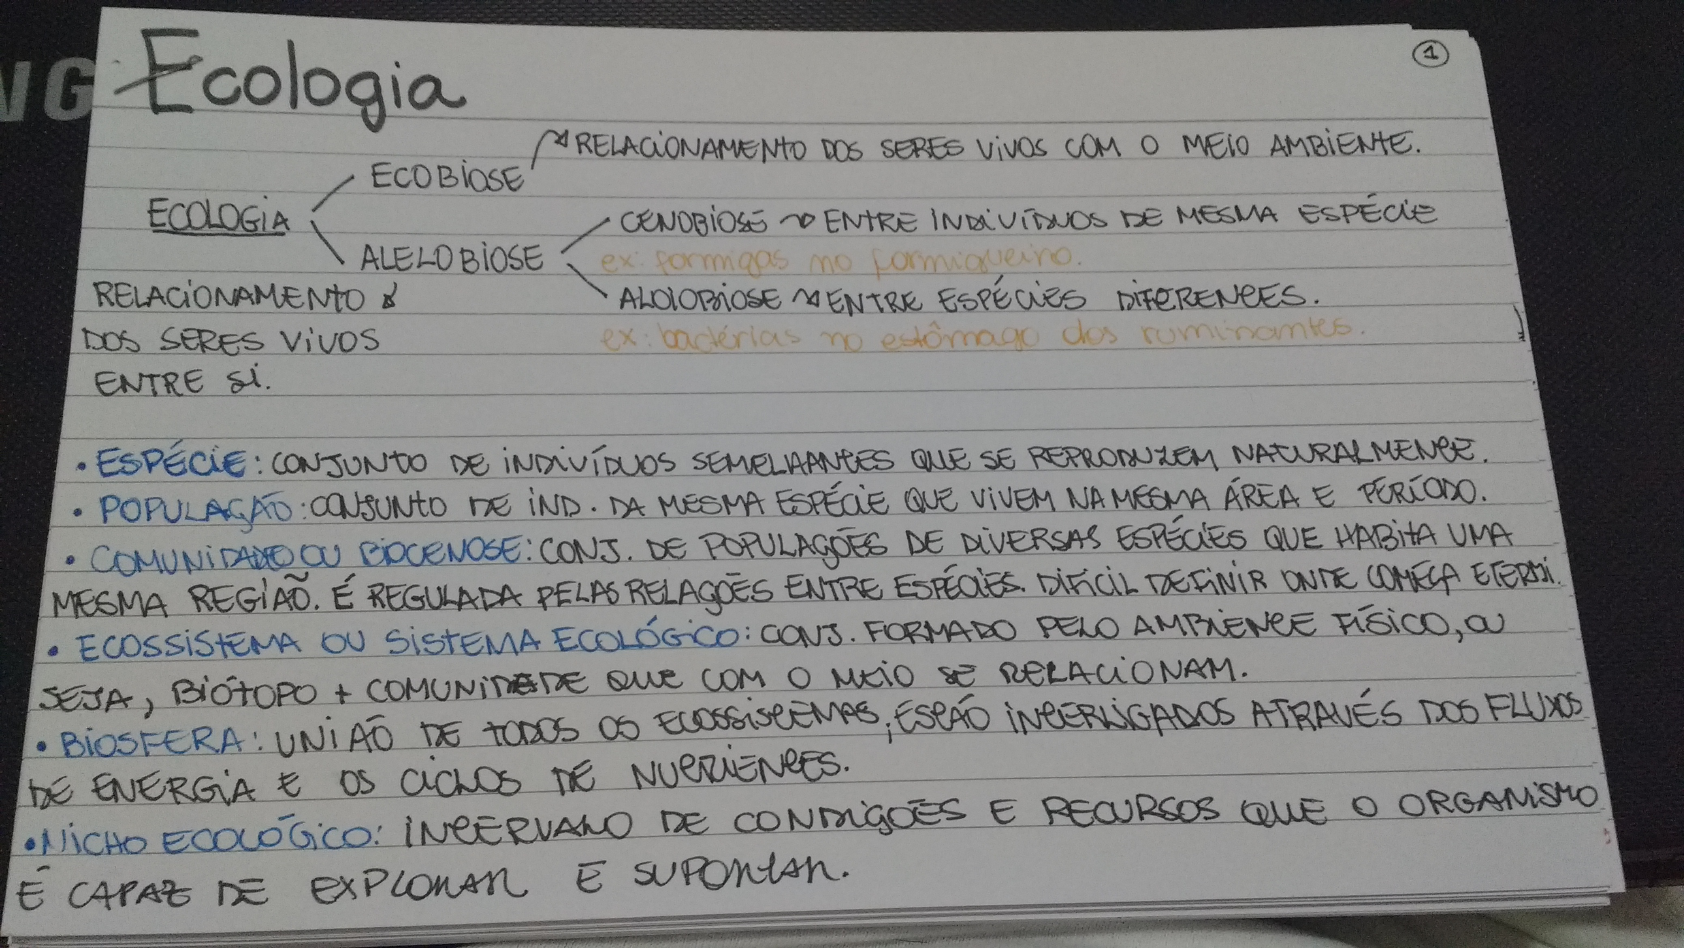 NG
Ecologia
1
RELACIONAMENTO DOS SERES VIVOS COM O MEIO AMBIENTE.
ECOBIOSE
ECOLOGIA
CENOBIOSE → ENTRE INDIVÍDUOS DE MESMA ESPÉCIE
ALELOBIOSE
ex: formigas no formigueiro.
RELACIONAMENTO
ALOIOBIOSE → ENTRE ESPÉCIES DIFERENTES.
DOS SERES VIVOS
ex: bactérias no estômago dos ruminantes.
ENTRE SI.
• ESPÉCIE: CONJUNTO DE INDIVÍDUOS SEMELHANTES QUE SE REPRODUZEM NATURALMENTE.
• POPULAÇÃO: CONJUNTO DE IND. DA MESMA ESPÉCIE QUE VIVEM NA MESMA ÁREA E PERÍODO.
• COMUNIDADE OU BIOCENOSE: CONJ. DE POPULAÇÕES DE DIVERSAS ESPÉCIES QUE HABITA UMA
MESMA REGIÃO. É REGULADA PELAS RELAÇÕES ENTRE ESPÉCIES. DIFÍCIL DEFINIR ONDE COMEÇA E TERMI.
• ECOSSISTEMA OU SISTEMA ECOLÓGICO: CONJ. FORMADO PELO AMBIENTE FÍSICO, OU
SEJA, BIÓTOPO + COMUNIDADE QUE COM O MEIO SE RELACIONAM.
• BIOSFERA: UNIÃO DE TODOS OS ECOSSISTEMAS, ESTÃO INTERLIGADOS ATRAVÉS DOS FLUXOS
DE ENERGIA E OS CICLOS DE NUTRIENTES.
• NICHO ECOLÓGICO: INTERVALO DE CONDIÇÕES E RECURSOS QUE O ORGANISMO
É CAPAZ DE EXPLORAR E SUPORTAR.